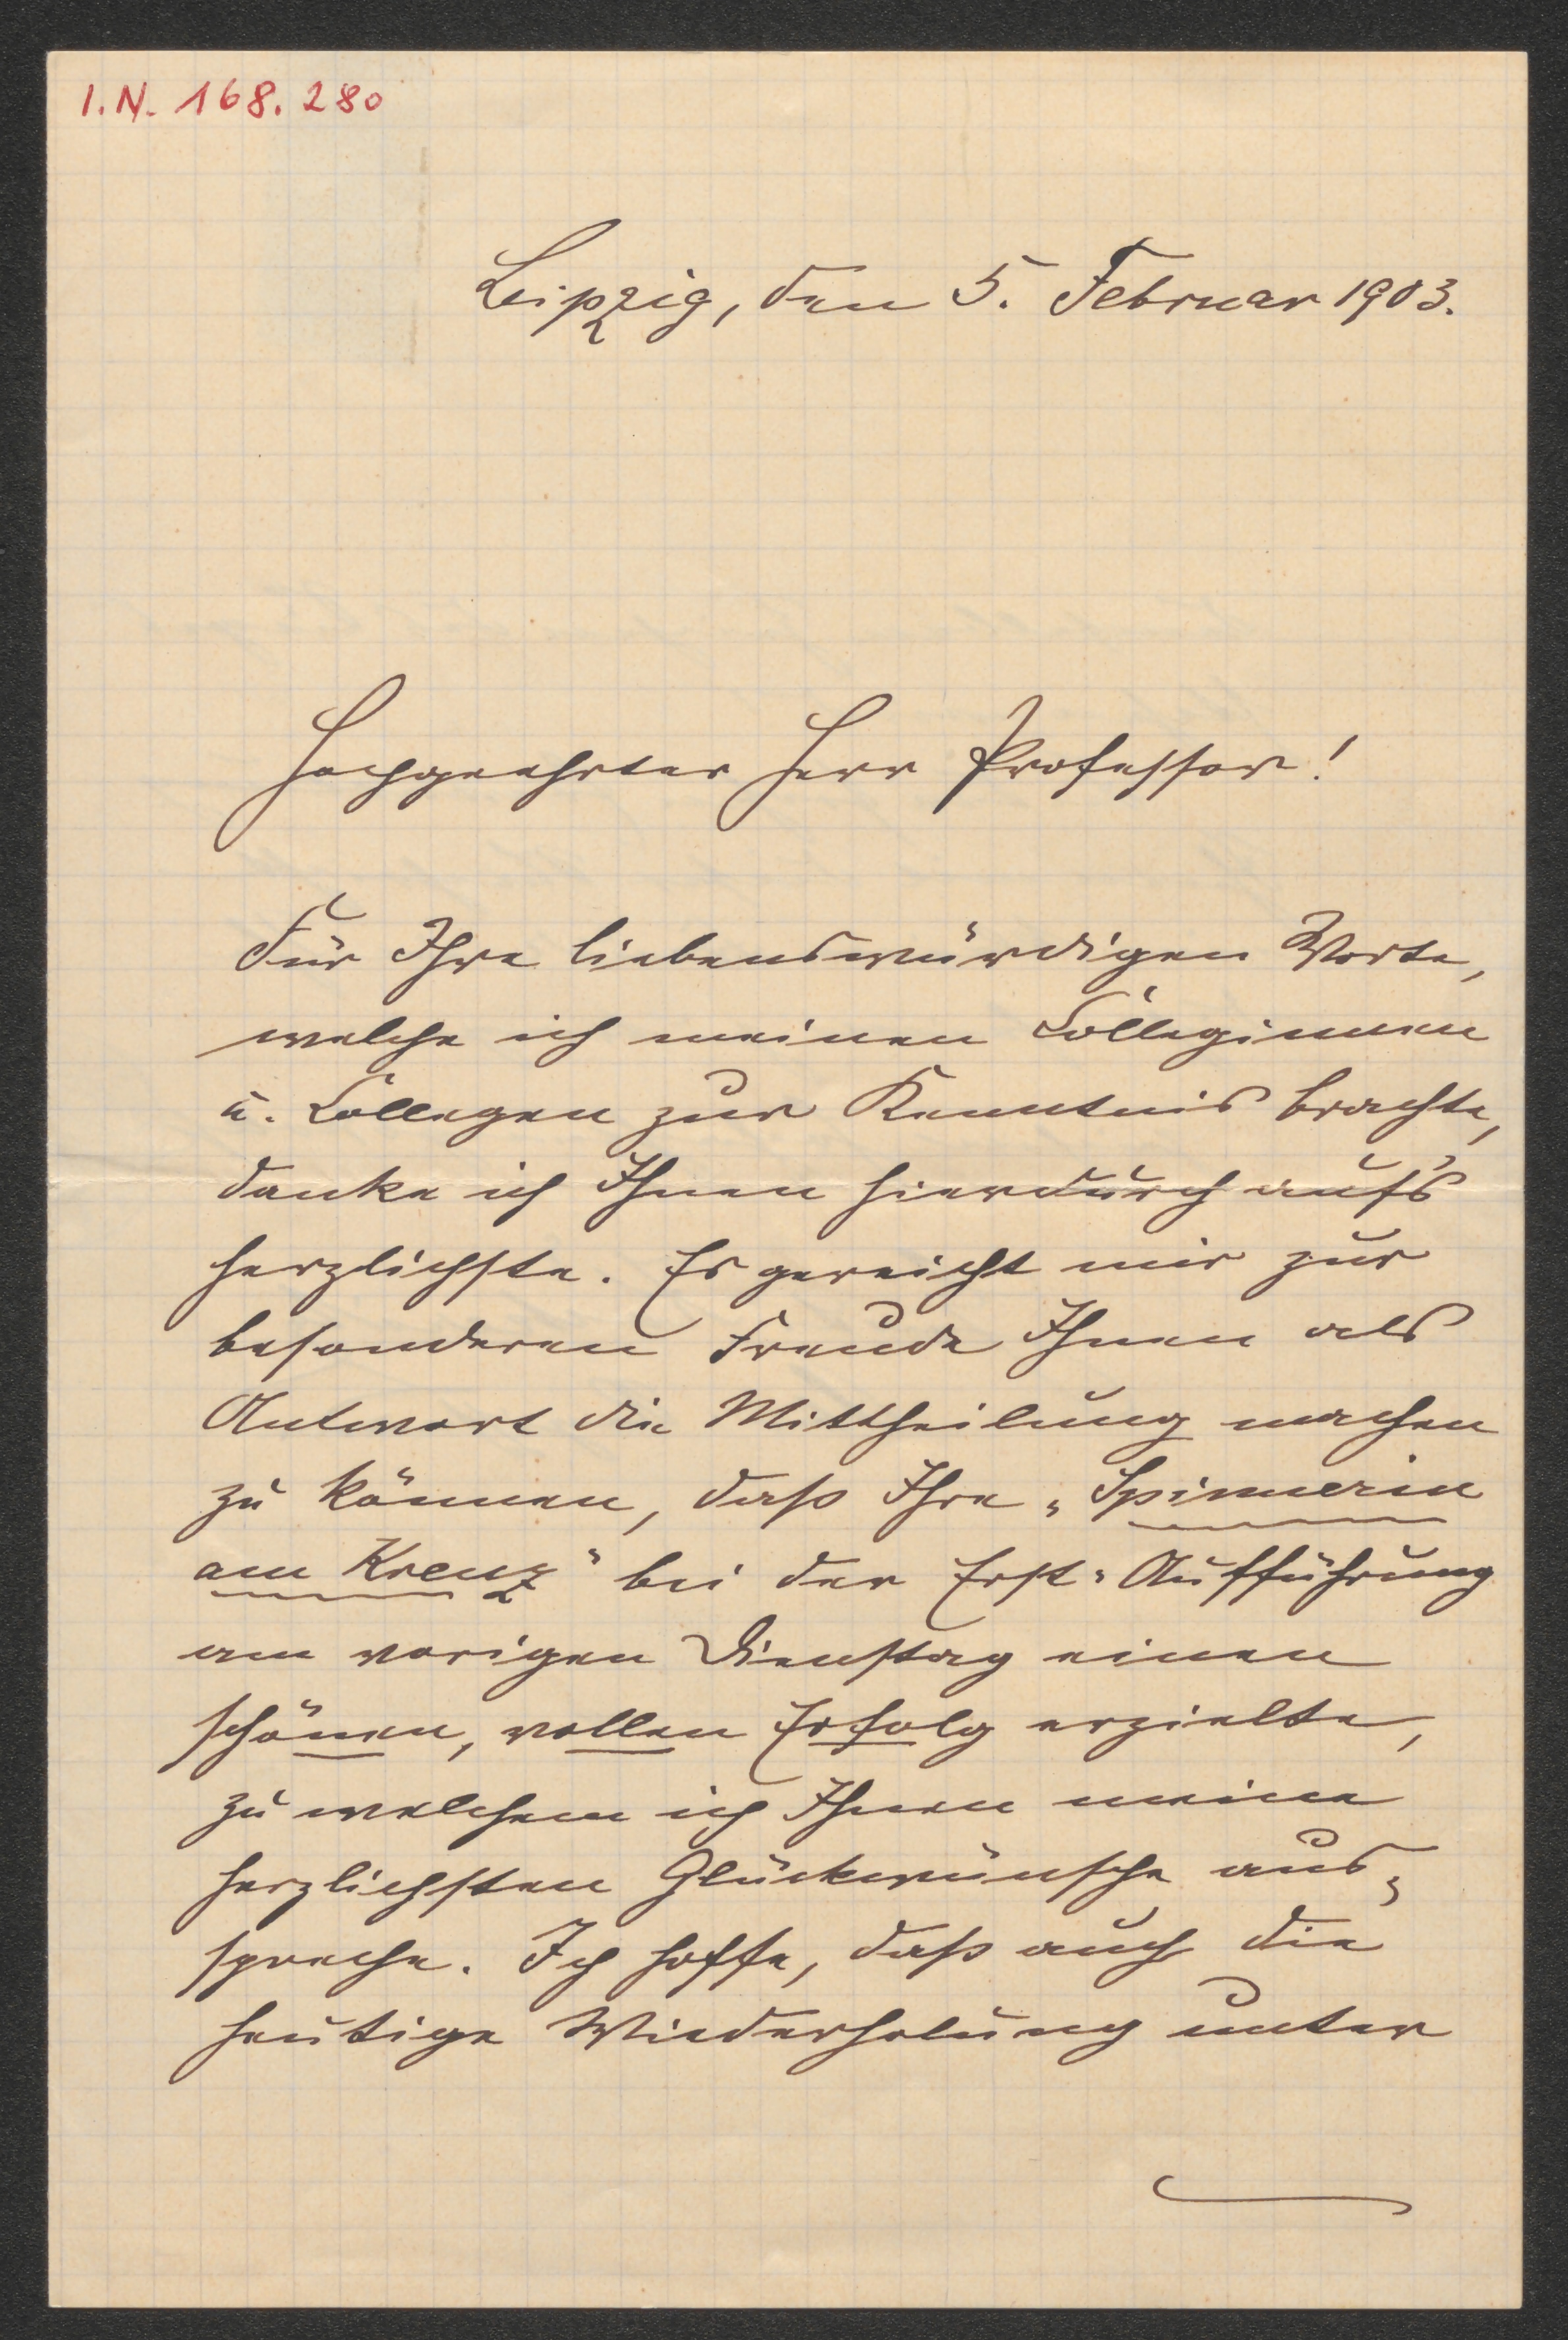 I.N. 168.280
Leipzig, den 5. Februar 1903.
Hochgeehrter Herr Professor!
Für Ihre liebenswürdigen Worte,
welche ich meinen Colleginnen
u. Collegen zur Kenntnis brachte,
danke ich Ihnen hierdurch auf's
herzlichste. Es gereicht mir zur
besonderen Freude Ihnen als
Antwort die Mittheilung machen
zu können, dass Ihre „Spinnerin
am Kreuz" bei der Erst-Aufführung
am vorigen Dienstag einen
schönen, vollen Erfolg erzielte,
zu welchem ich Ihnen meine
herzlichsten Glückwünsche aus-
spreche. Ich hoffe, dass auch die
heutige Wiederholung unter